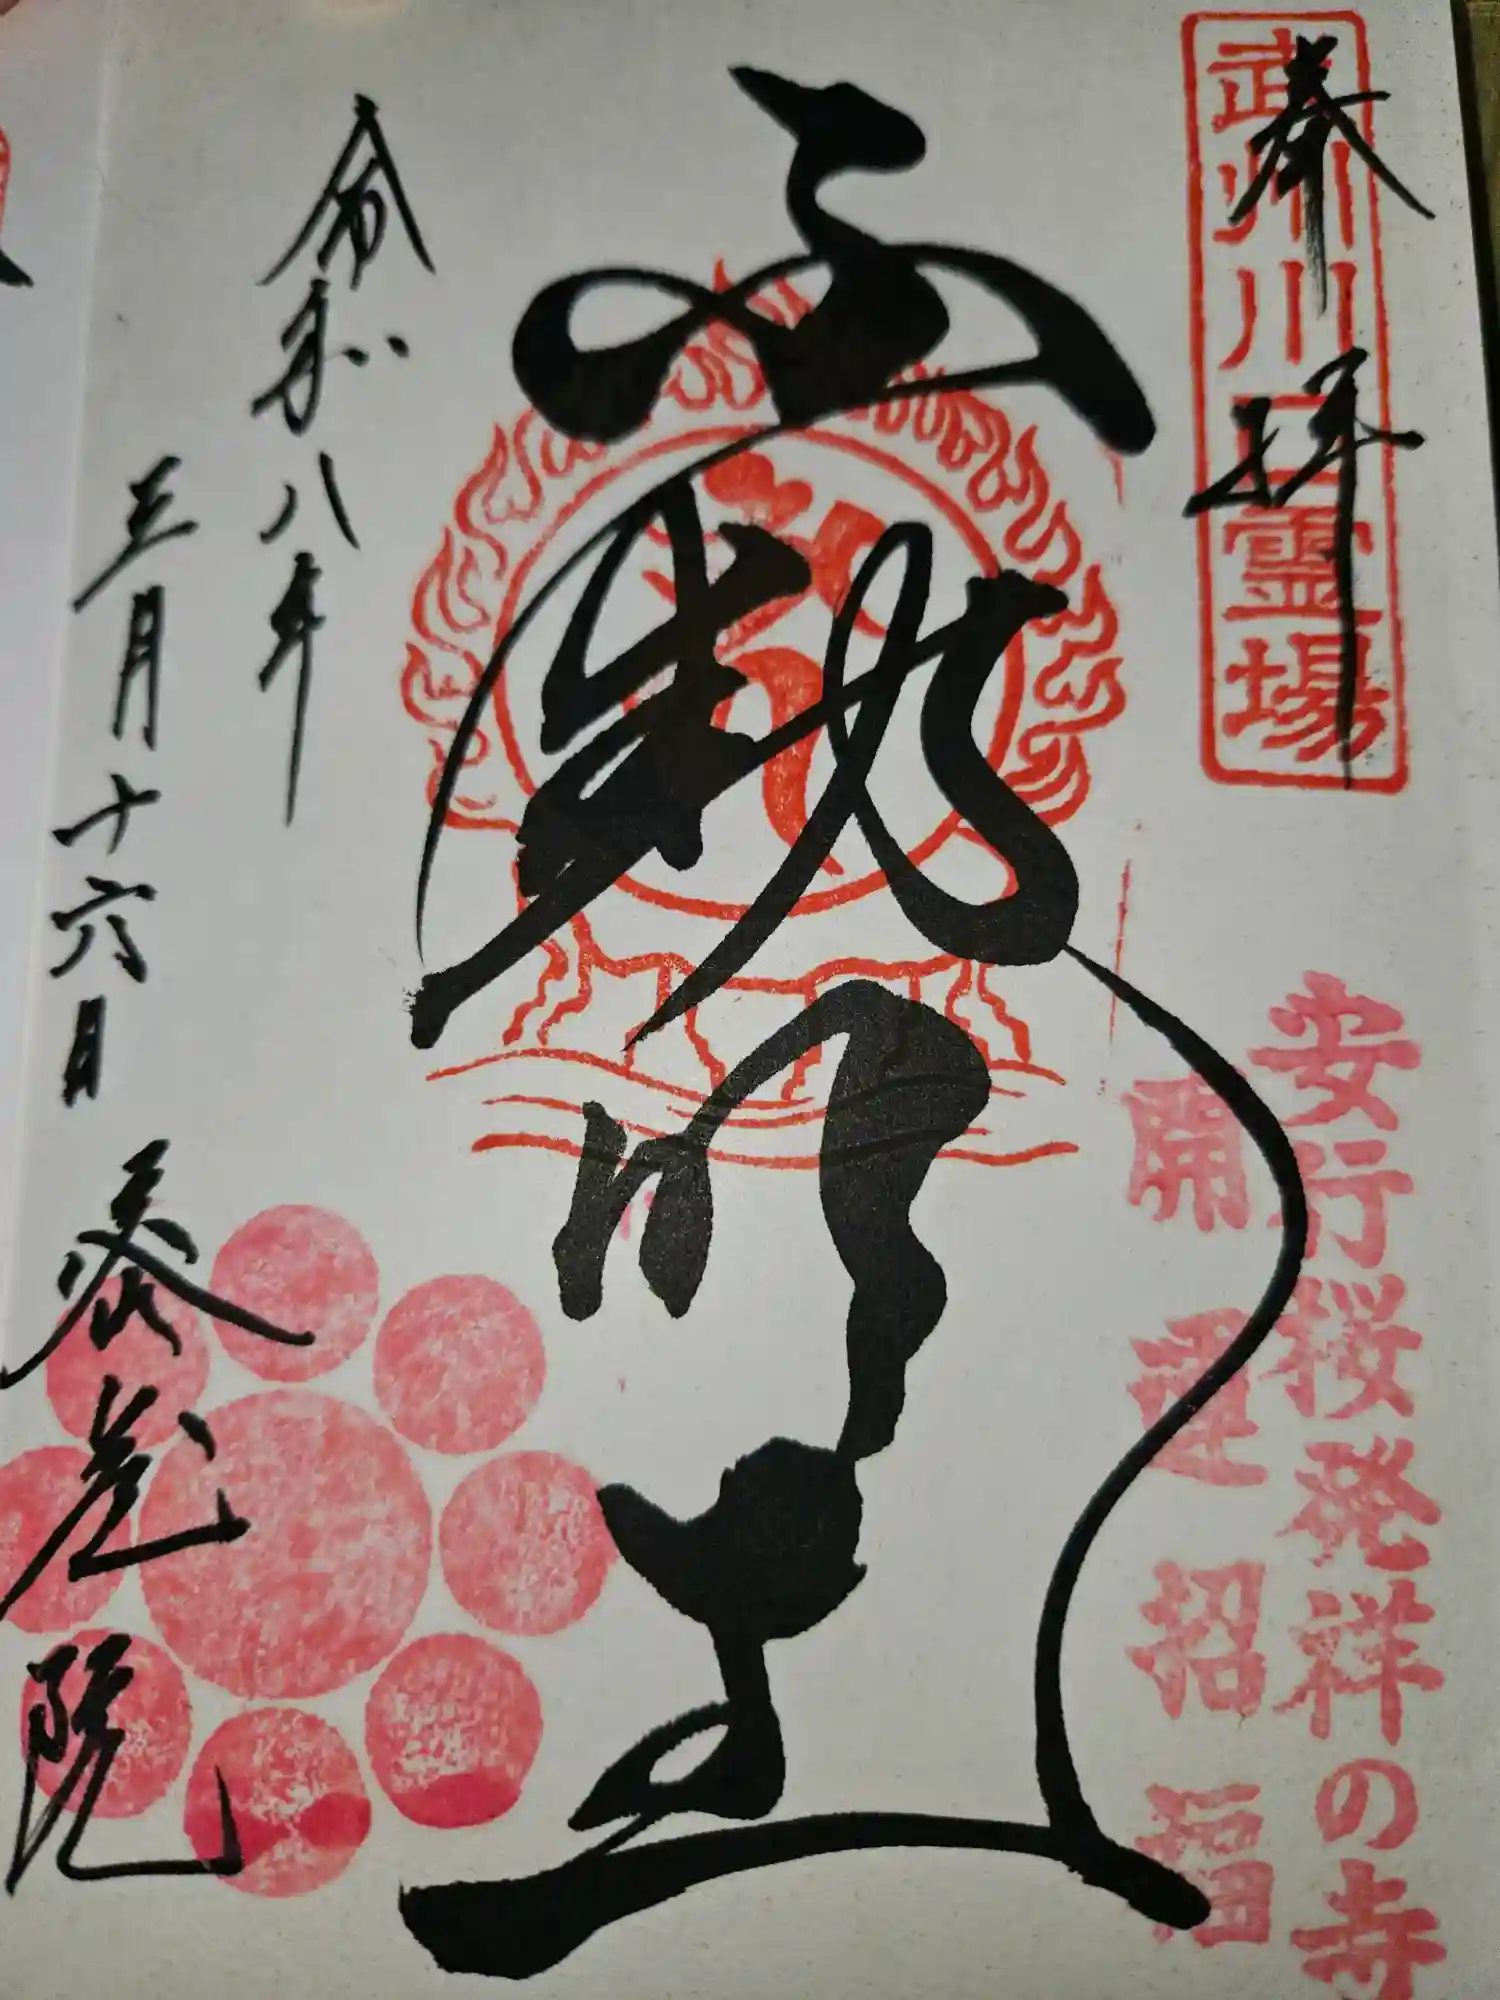 武州川口霊場
奉拝
安行桜発祥の寺
開運招福
不動明王
令和八年
三月十六日